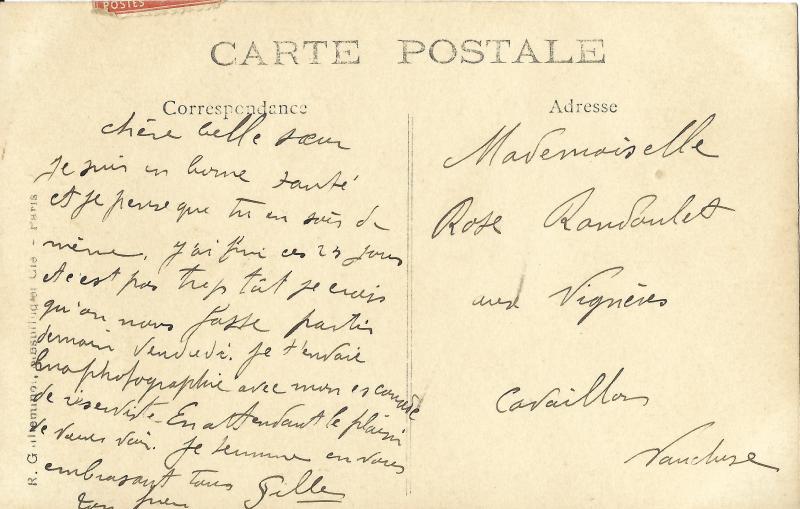 POSTES
CARTE POSTALE
Correspondance
chère belle sœur
Je suis en bonne santé
et je pense que tu en sois de
même, j'ai fini ces 23 jours
et c'est pas trop tôt je crois
qu'on nous fasse partir
demain vendredi. je t'envoie
ma photographie avec mon escouade
de réserviste. En attendant le plaisir
de vous voir. Je termine en vous
embrassant tous
Gille
Adresse
Mademoiselle
Rose Randoulet
aux Vignères
Cavaillon
Vaucluse
R. Guilleminot, Paris